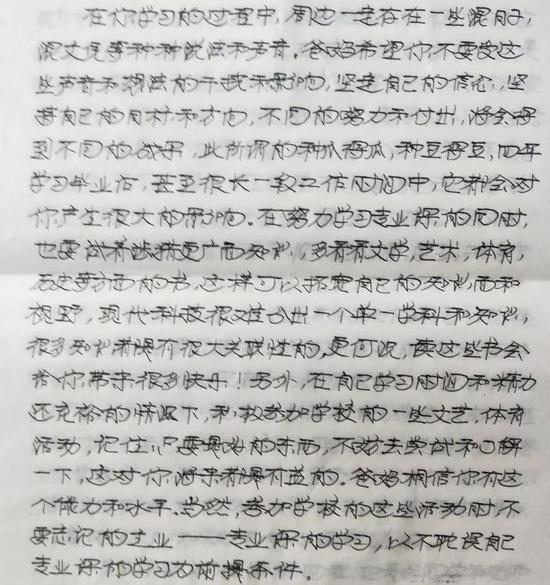 在你学习的过程中，周边一定存在一些混日子，
混文凭等种种说法和声音。爸妈希望你不要受这
些声音和想法的干扰和影响，坚定自己的信心，坚
定自己的目标和方向，不同的努力和付出，将会得
到不同的成果，此所谓的种瓜得瓜，种豆得豆，四年
学习毕业后，甚至很长一段工作时间中，它都会对
你产生很大的影响。在努力学习专业课的同时，
也要试着涉猎更广面知识，多看看文学，艺术，体育，
历史等方面的书，这样可以拓宽自己的知识面和
视野，现代科技很难分出一个单一学科和知识，
很多知识都是有很大关联性的，更何况，读这些书会
给你带来很多快乐！另外，在自己学习时间和精力
还充裕的情况下，积极参加学校的一些文艺、体育
活动，记住，只要是好的东西，不妨去尝试和了解
一下，这对你将来都是有益的。爸妈相信你有这
个能力和水平。当然，参加学校的这些活动时，不
要忘记的主业——专业课的学习，以不耽误自己
专业课的学习为前提条件。